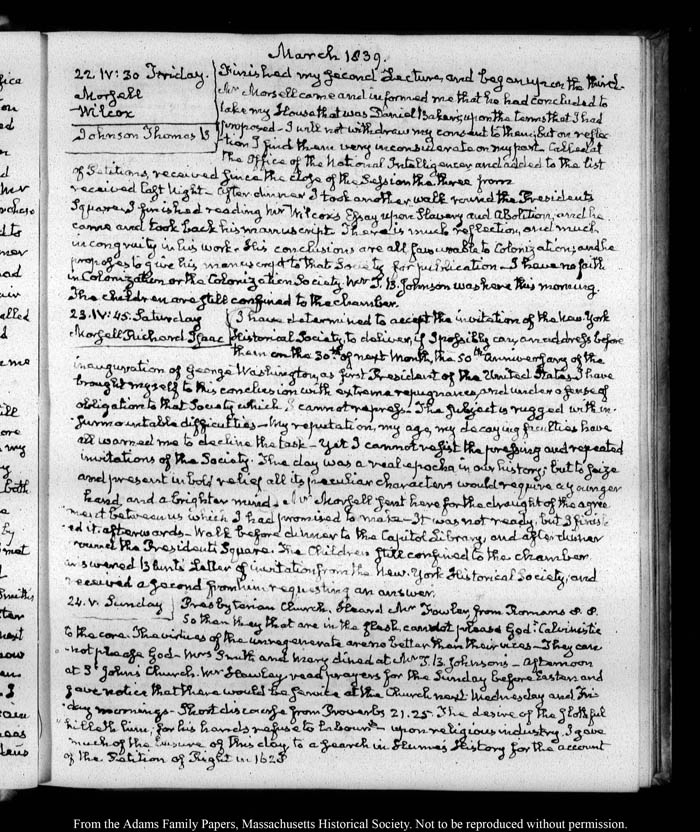 March 1839.
22. IV: 30 Friday. Finished my second Lecture, and began upon the third.
Morsell Mr Morsell came and informed me that he had concluded to
Wilcox take my House that was Daniel Baker's, upon the terms that I had
Johnson Thomas B proposed - I will not withdraw my consent to them; but on reflec-
tion I find them very inconsiderate on my part. Called at
the Office of the National Intelligencer, and added to the list
of Petitions, received since the close of the Session the three from
received last Night - After dinner I took another walk round the Presidents
Square. I finished reading Mr Wilcox's Essay upon Slavery and Abolition, and he
came and took back his manuscript. There is much reflection, and much
incongruity in his work - His conclusions are all favourable to Colonization; and he
proposes to give his manuscript to that Society for publication - I have no faith
in Colonization or the Colonization Society. Mr T. B. Johnson was here this morning.
The children are still confined to the chamber.
23. IV: 45. Saturday I have determined to accept the invitation of the New-York
Morsell Richard Isaac Historical Society, to deliver, if I possibly can, an address before
them on the 30th of next Month, the 50th anniversary of the
inauguration of George Washington, as first President of the United States. I have
brought myself to this conclusion with extreme repugnance, and under a sense of
obligation to that Society which I cannot repress - The subject is rugged with in-
surmountable difficulties - My reputation, my age, my decaying faculties have
all warned me to decline the task - Yet I cannot resist the pressing and repeated
invitations of the Society. The day was a real epocha in our history; but to seize
and present in bold relief all its peculiar characters would require a younger
hand, and a brighter mind. - Mr Morsell sent here for the draught of the agree-
ment between us which I had promised to make - It was not ready, but I finish-
ed it afterwards - Walk before dinner to the Capitol Library, and after dinner
round the Presidents Square. The Children still confined to the chamber.
answered Blunt's Letter of invitation from the New-York Historical Society, and
received a second from him requesting an answer.
24. V. Sunday Presbyterian Church. Heard Mr Fowler, from Romans 8. 8.
So then they that are in the flesh cannot please God: Calvinistic
to the core. The virtues of the unregenerate are no better than their vices - They can
not please God - Mrs Smith and Mary dined at Mr T. B. Johnson's - Afternoon
at St John's Church. Mr Hawley read prayers for the Sunday before Easter; and
gave notice that there would be service at the Church next Wednesday and Fri-
day mornings - Short discourse from Proverbs 21. 25. The desire of the slothful
killeth him; for his hands refuse to labour - upon religious industry. I gave
much of the leisure of this day, to a search in Hume's History for the account
of the Petition of Right in 1628
From the Adams Family Papers, Massachusetts Historical Society. Not to be reproduced without permission.